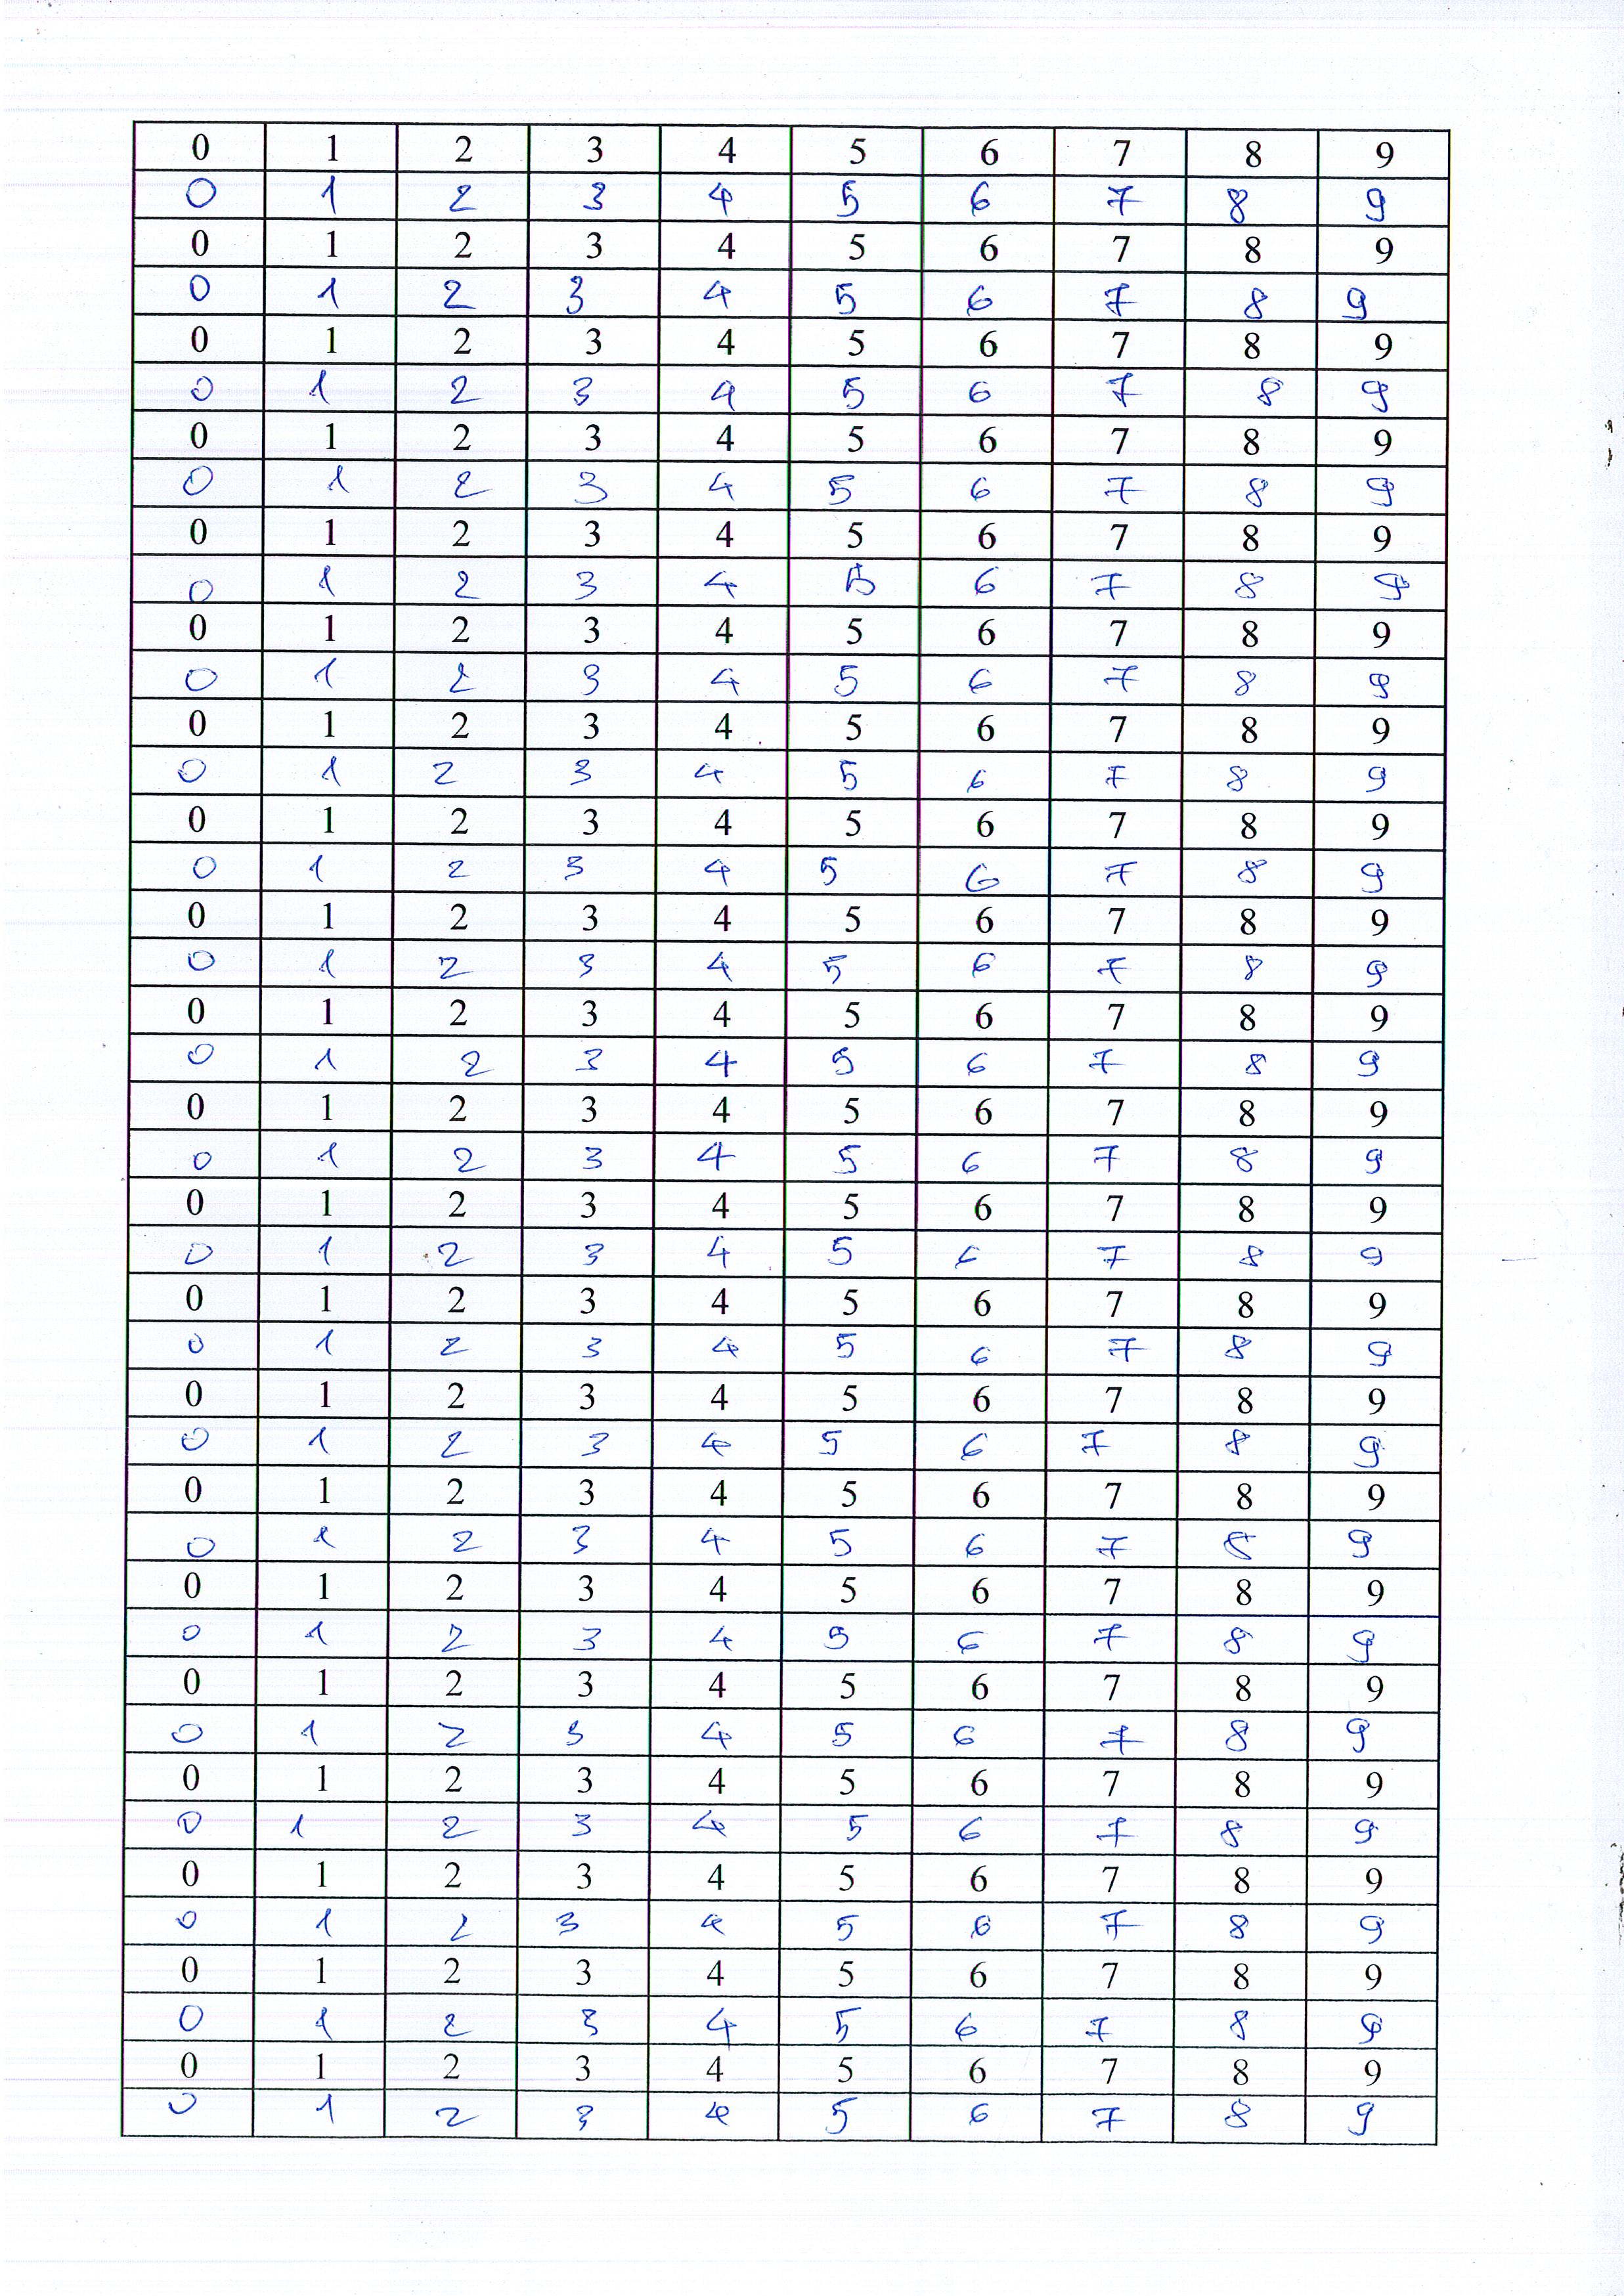 0 1 2 3 4 5 6 7 8 9
0 1 2 3 4 5 6 7 8 9
0 1 2 3 4 5 6 7 8 9
0 1 2 3 4 5 6 7 8 9
0 1 2 3 4 5 6 7 8 9
0 1 2 3 4 5 6 7 8 9
0 1 2 3 4 5 6 7 8 9
0 1 2 3 4 5 6 7 8 9
0 1 2 3 4 5 6 7 8 9
0 1 2 3 4 5 6 7 8 9
0 1 2 3 4 5 6 7 8 9
0 1 2 3 4 5 6 7 8 9
0 1 2 3 4 5 6 7 8 9
0 1 2 3 4 5 6 7 8 9
0 1 2 3 4 5 6 7 8 9
0 1 2 3 4 5 6 7 8 9
0 1 2 3 4 5 6 7 8 9
0 1 2 3 4 5 6 7 8 9
0 1 2 3 4 5 6 7 8 9
0 1 2 3 4 5 6 7 8 9
0 1 2 3 4 5 6 7 8 9
0 1 2 3 4 5 6 7 8 9
0 1 2 3 4 5 6 7 8 9
0 1 2 3 4 5 6 7 8 9
0 1 2 3 4 5 6 7 8 9
0 1 2 3 4 5 6 7 8 9
0 1 2 3 4 5 6 7 8 9
0 1 2 3 4 5 6 7 8 9
0 1 2 3 4 5 6 7 8 9
0 1 2 3 4 5 6 7 8 9
0 1 2 3 4 5 6 7 8 9
0 1 2 3 4 5 6 7 8 9
0 1 2 3 4 5 6 7 8 9
0 1 2 3 4 5 6 7 8 9
0 1 2 3 4 5 6 7 8 9
0 1 2 3 4 5 6 7 8 9
0 1 2 3 4 5 6 7 8 9
0 1 2 3 4 5 6 7 8 9
0 1 2 3 4 5 6 7 8 9
0 1 2 3 4 5 6 7 8 9
0 1 2 3 4 5 6 7 8 9
0 1 2 3 4 5 6 7 8 9